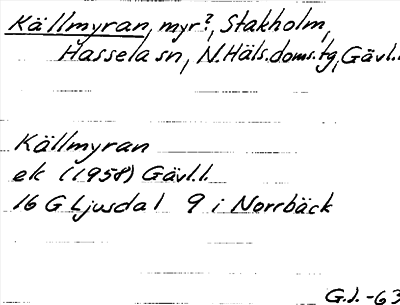 Källmyran, myr?, Stakholm,
Hassela sn, N.Häls.doms.tg, Gävl.l.
Källmyran
ek (1958) Gävl.l.
16 G Ljusdal 9 i Norrbäck
G.J. -63